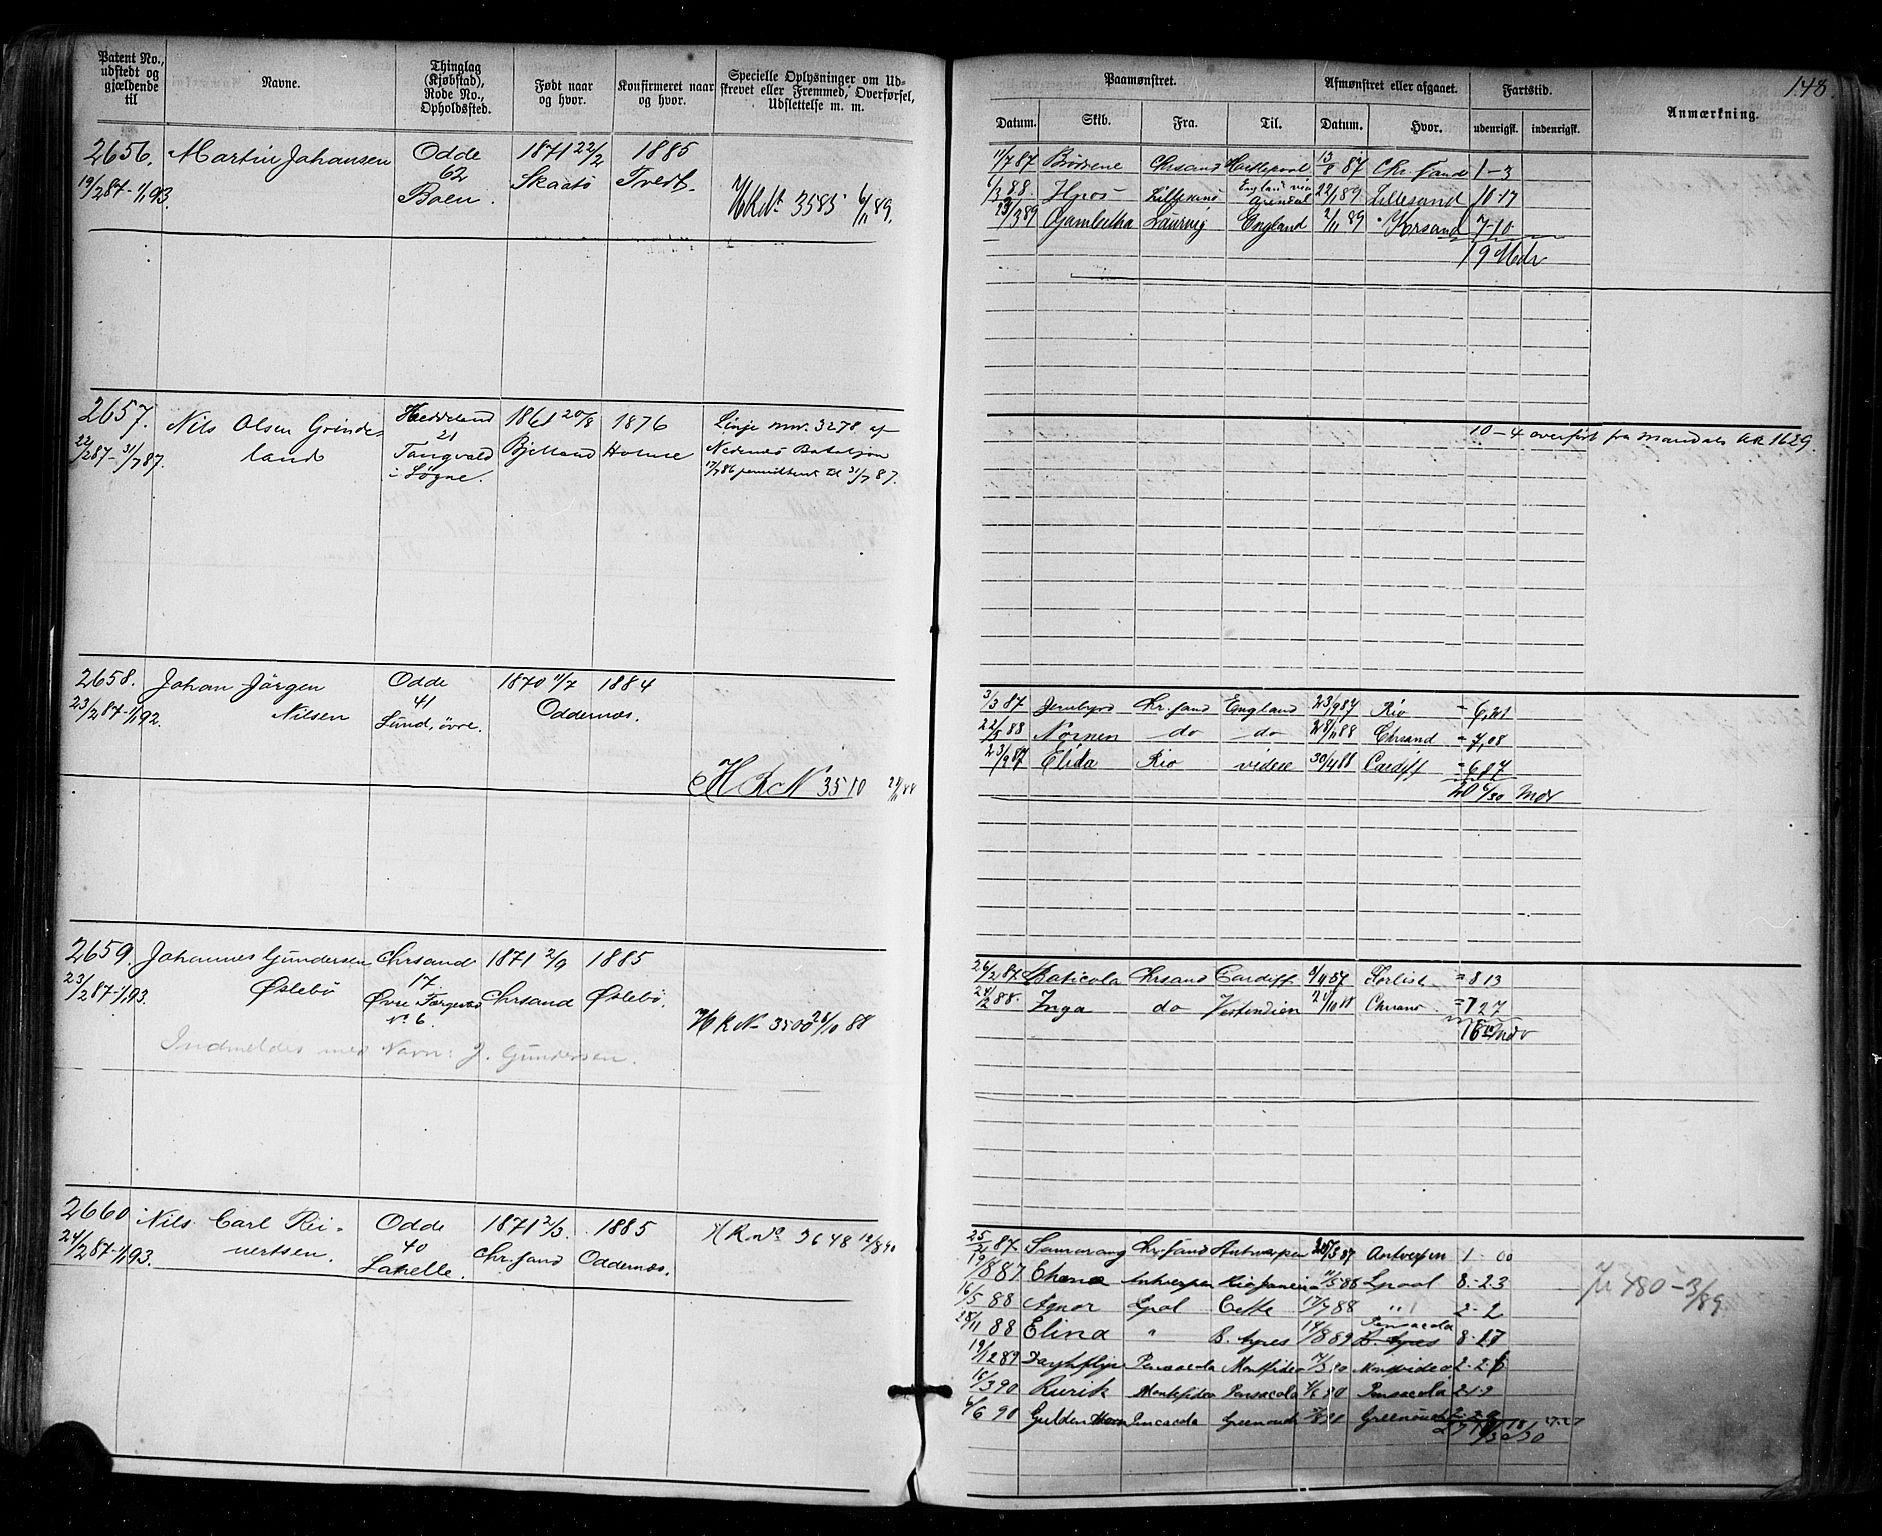 148.
Patent No., udstedt og gjældende til
Navne.
Thinglag (Kjøbstad), Rode No., Opholdssted.
Født naar og hvor.
Konfirmeret naar og hvor.
Specielle Oplysninger om Udskrevet eller Fremmed, Overførsel, Udslettelse m. m.
Paamønstret.
Afmønstret eller afgaaet.
Fartstid.
Anmærkning.
Datum. Skib. Fra. Til. Datum. Hvor. udenrigsk. indenrigsk.
2656. Martin Johansen Odde 1871 22/2 1885
19/2 87 - 1/1 93. 62 Skaatø Tvedt.
Boen. HRNr 3585 6/11 89.
11/7 87 Brödrene Chrsand Hartlepool 13/8 87 Chr.sand 1-3
6/3 88 Lillesand England via Arendal 22/1 89 Lillesand 10-17
23/3 89 Gambetta Laurvig England 2/11 89 Krsand 7-10
19 Mdr
2657. Nils Olsen Grinde- Heddeland 1861 20/8 1876 Linje mnr. 3278 af
22/2 87 - 31/7 87. land 21 Bjelland Holme Nedenes Bataljon
Tangvald 17/7 86 permitteret til 31/7 87.
i Søgne.
10-4 overfört fra Mandals AR 1629.
2658. Johan Jörgen Odde 1870 11/7 1884
23/2 87 - 1/1 92. Nilsen 41 Oddernæs.
Lund, övre.
HRN 3510 24/11 88
3/3 87 Jernbyrd Chr.sand England 23/9 87 Rio = 6,21
22/5 88 Nornen do do 28/11 88 Chrsand = 7,08
23/9 87 Elida Rio videre 30/4 88 Cardiff = 6,87
20 6/30 Mdr
2659. Johannes Gundersen Chrsand 1871 2/9 1885
23/2 87 - 1/1 93. Øslebö 17 Chrsand Øslebö.
Øvre Torvegad
No 6.
HRN 3500 26/10 88
Indmeldes med Navn: J. Gundersen.
26/2 87 Chrsand Cardiff 9/11 87 = 8 13
24/2 88 Inga do Vestindien 21/10 88 Chrsand = 7 27
Mdr
2660. Nils Carl Rei- Odde 1871 2/3 1885 HRNo 3648 12/8 90
24/2 87 - 1/1 93. nertsen. 40 Chr.sand Oddernæs.
Lahelle.
25/2 87 Samarang Chr.sand Antwerpen 25/3 87 Antverpen 1-00
19/8 87 Antverpen Rio Janeiro 11/5 88 Lpool 8-23
16/5 88 Agnor Lpol Cette 17/7 88 " 2-2
28/11 88 Elina " B. Ayres 14/8 89 B. Ayres Pensacola 8-17
19/12 89 Pensacola Montvideo Montvideo 2-2
18/3 90 Rurik Montevideo Pensacola 4/6 90 Pensacola 2-1
6/6 90 Gylden Pensacola Greenock Greenock
480-3/89